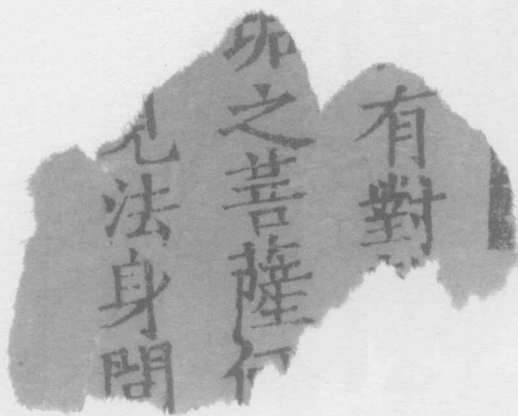 有對
之菩薩何
見法身問